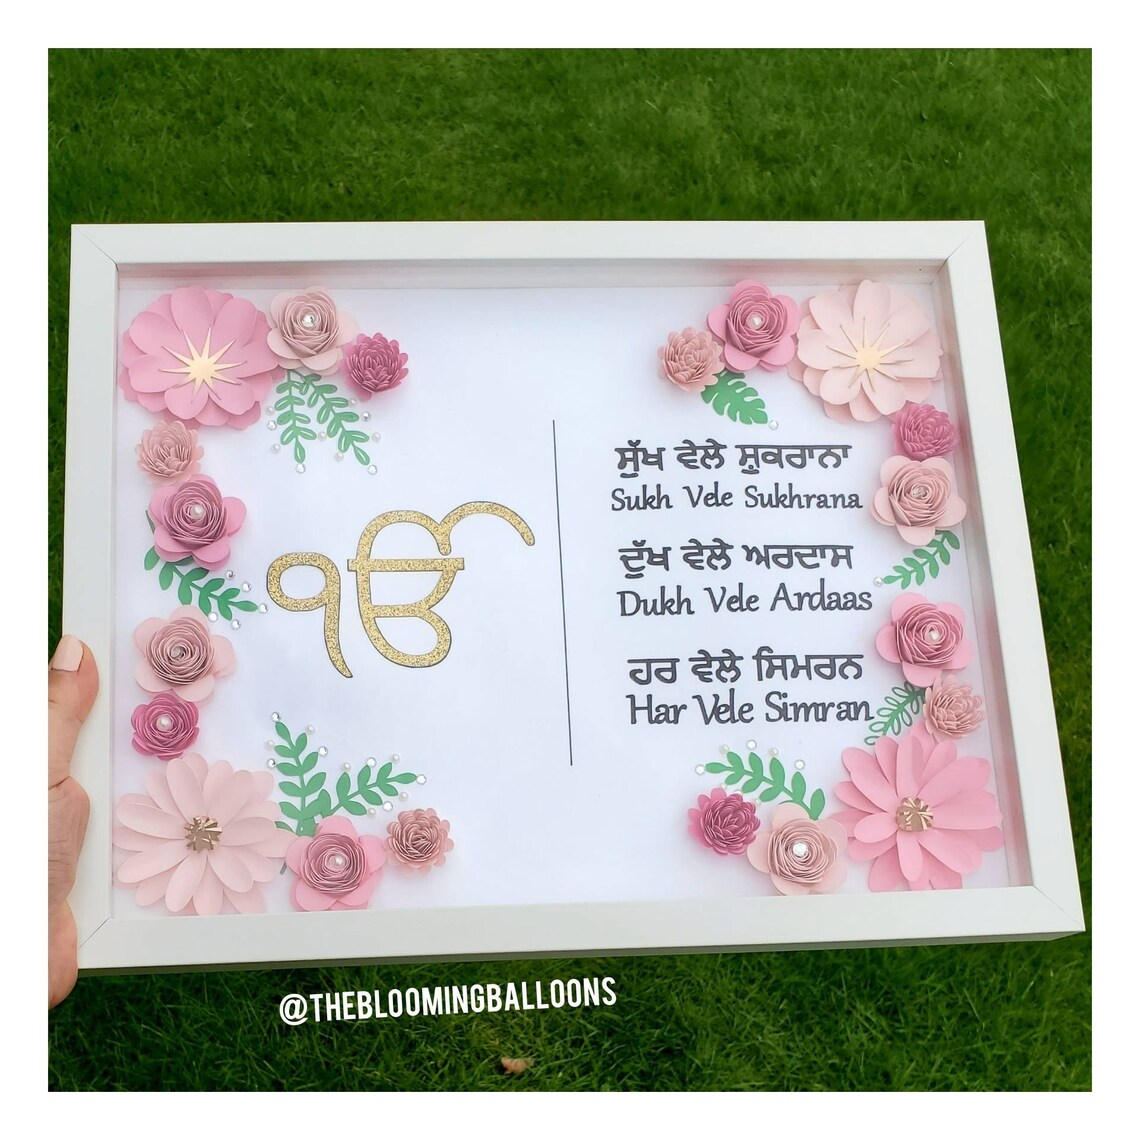 ੴ
ਸੁੱਖ ਵੇਲੇ ਸ਼ੁਕਰਾਨਾ
Sukh Vele Sukhrana
ਦੁੱਖ ਵੇਲੇ ਅਰਦਾਸ
Dukh Vele Ardaas
ਹਰ ਵੇਲੇ ਸਿਮਰਨ
Har Vele Simran
@THEBLOOMINGBALLOONS